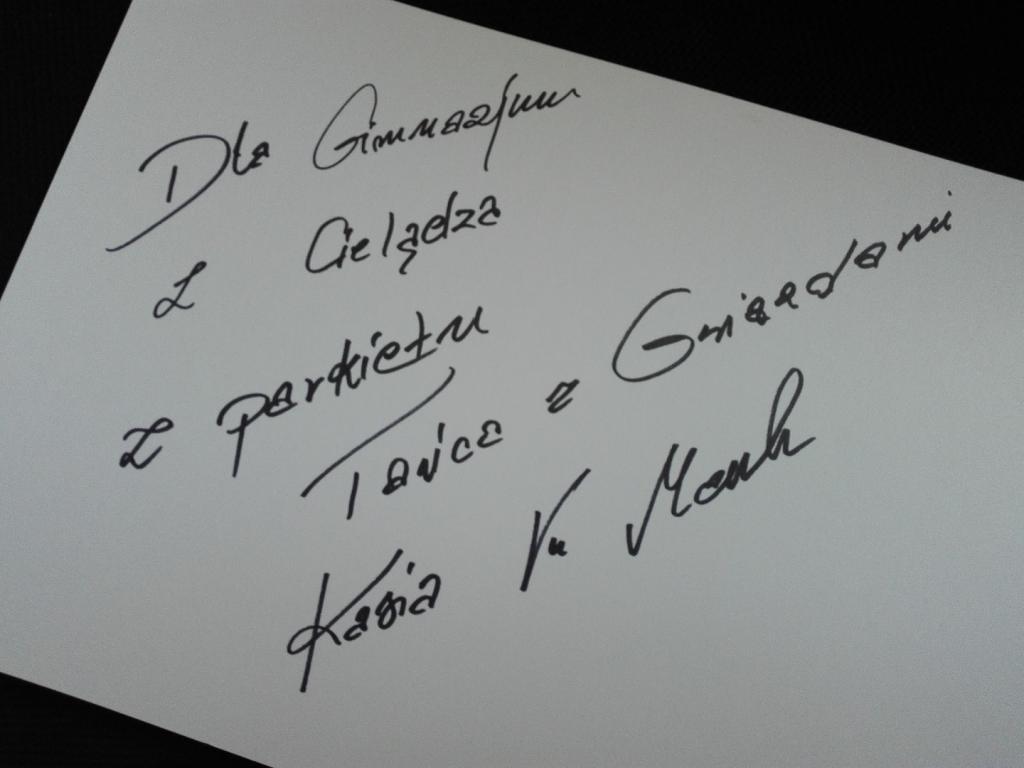 Dla Gimnazjum
z Cielądza
z parkietu
Tańca z Gwiazdami
Kasia Vu Manh